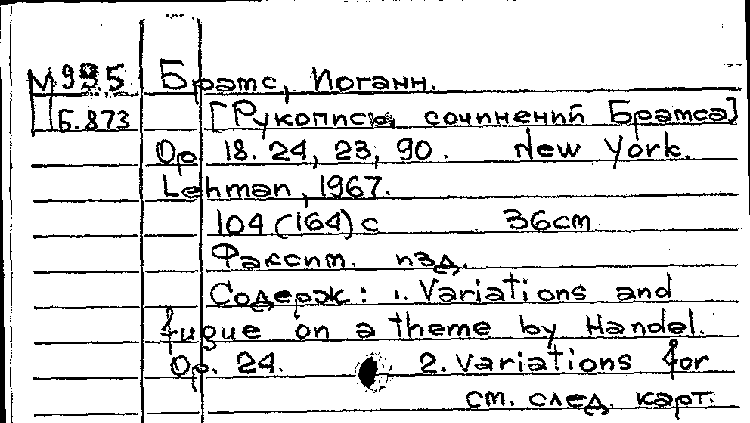 М 995 Братс, Иоганн.
Б.873 [Рукописи сочинений Братса]
Op 18. 24, 23, 90. New York.
Lehman, 1967.
104 (164) с 36cm
Факсит. изд.
Содерж: 1. Variations and
fugue on a theme by Handel.
Op. 24. 2. Variations for
ст. след. карт.